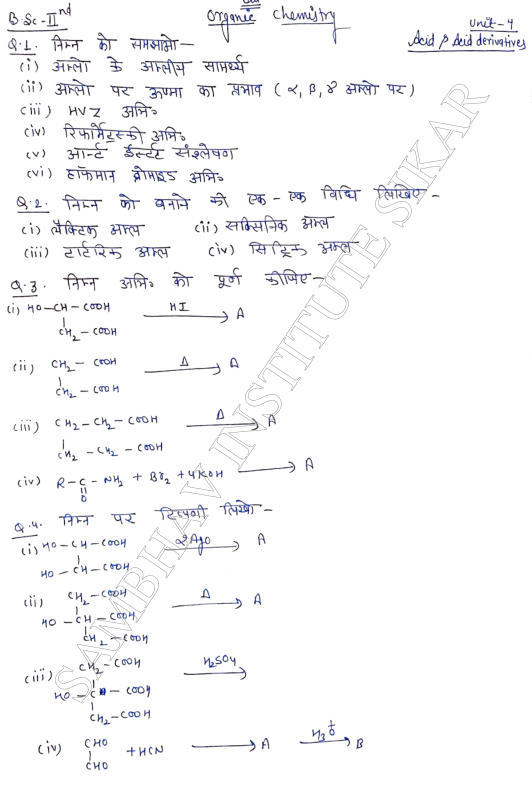 B.Sc-IInd
Organic Chemistry
Unit-4
Acid & Acid derivatives
Q.1. निम्न को समझाओ-
(i) अम्लों के अम्लीय सामर्थ्य
(ii) अम्लों पर ऊष्मा का प्रभाव ( α, β, γ अम्लों पर )
(iii) HVZ अभि०
(iv) रिफार्मेट्स्की अभि०
(v) आर्न्ट ईस्टर्ट संश्लेषण
(vi) हॉफमान ब्रोमाइड अभि०
Q.2. निम्न को बनाने की एक-एक विधि लिखिए-
(i) लैक्टिक अम्ल (ii) सक्सिनिक अम्ल
(iii) टार्टरिक अम्ल (iv) सिट्रिक अम्ल
Q.3. निम्न अभि० को पूर्ण कीजिए-
(i) HO-CH-COOH HI → A
CH2-COOH
(ii) CH2-COOH Δ → A
CH2-COOH
(iii) CH2-CH2-COOH Δ → A
CH2-CH2-COOH
(iv) R-C-NH2 + Br2 + 4KOH → A
O
Q.4. निम्न पर टिप्पणी लिखो-
(i) HO-CH-COOH 2AgO → A
HO-CH-COOH
(ii) CH2-COOH Δ → A
HO-CH-COOH
CH2-COOH
(iii) CH2-COOH H2SO4 →
HO-C-COOH
CH2-COOH
(iv) CHO + HCN → A H3O+ → B
CHO
SAMBHAV INSTITUTE SIKAR